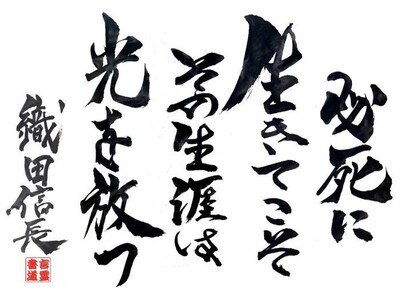 必死に
生きてこそ
その生涯は
光を放つ
織田信長
言霊
書道